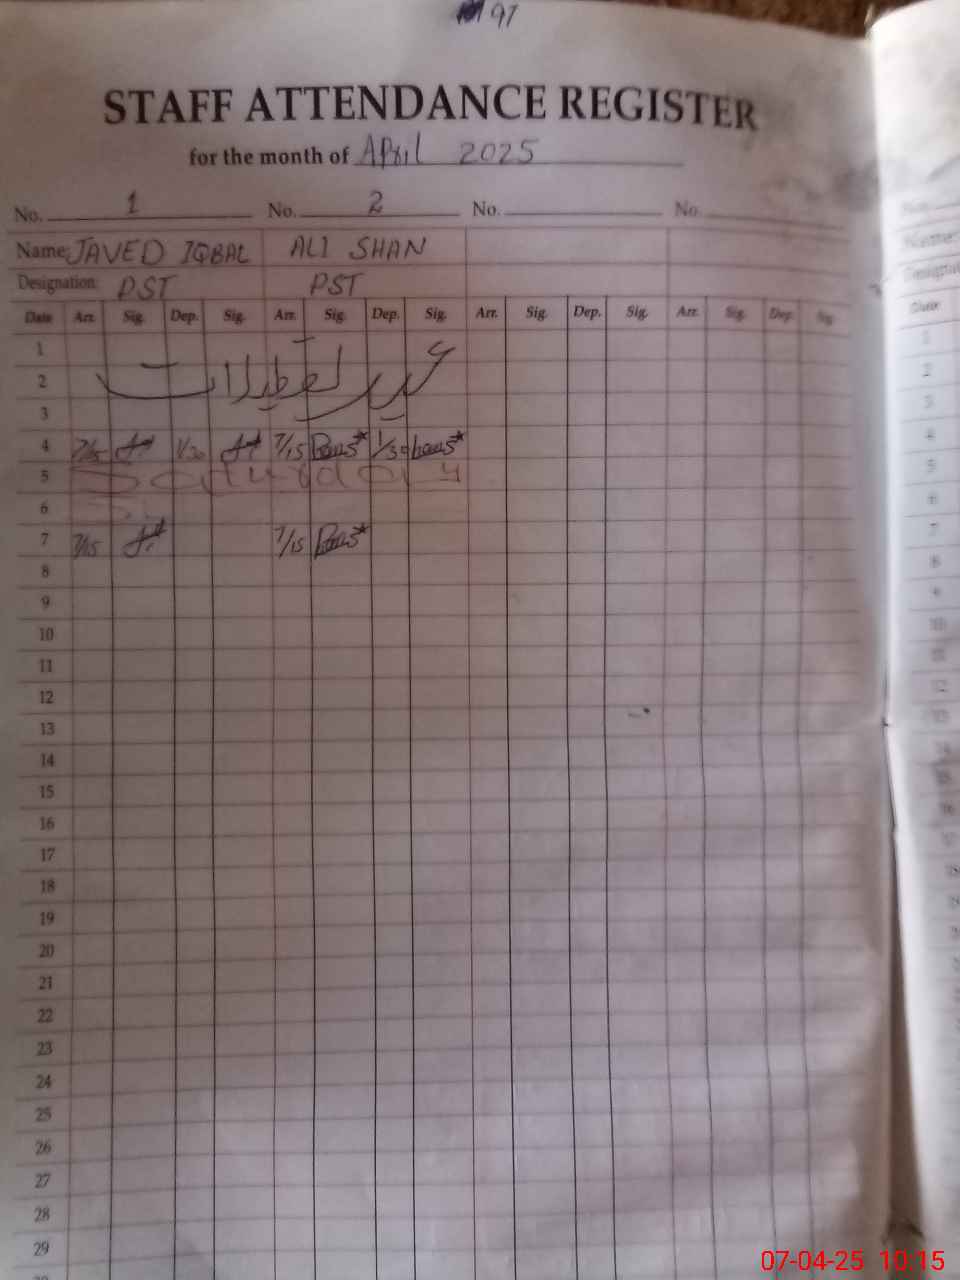 97
STAFF ATTENDANCE REGISTER
for the month of April 2025
No. 1 No. 2 No. No.
Name: JAVED IQBAL ALI SHAN
Designation: PST PST
Date Arr. Sig. Dep. Sig. Arr. Sig. Dep. Sig. Arr. Sig. Dep. Sig. Arr. Sig. Dep. Sig.
1
2 عید تعطیلات
3
4 7/15 1/30 7/15 1/30
5 Saturday
6
7 7/15 7/15
8
9
10
11
12
13
14
15
16
17
18
19
20
21
22
23
24
25
26
27
28
29
07-04-25 10:15